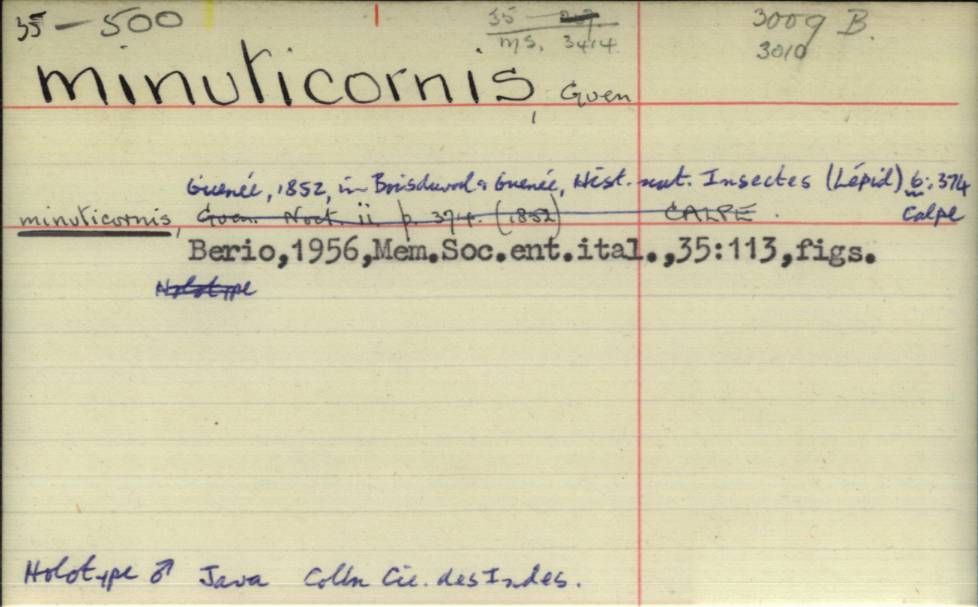 35 – 500
35 – 207
MS. 3414
3009 B.
3010
minuticornis, Guen
Guenée, 1852, in Boisduval & Guenée, Hist. nat. Insectes (Lépid) 6: 374
minuticornis, Guen. Noct. ii p. 374. (1852) CALPE.
Calpe
Berio,1956,Mem.Soc.ent.ital.,35:113,figs.
Holotype
Holotype ♂ Java Colln Cie. des Indes.